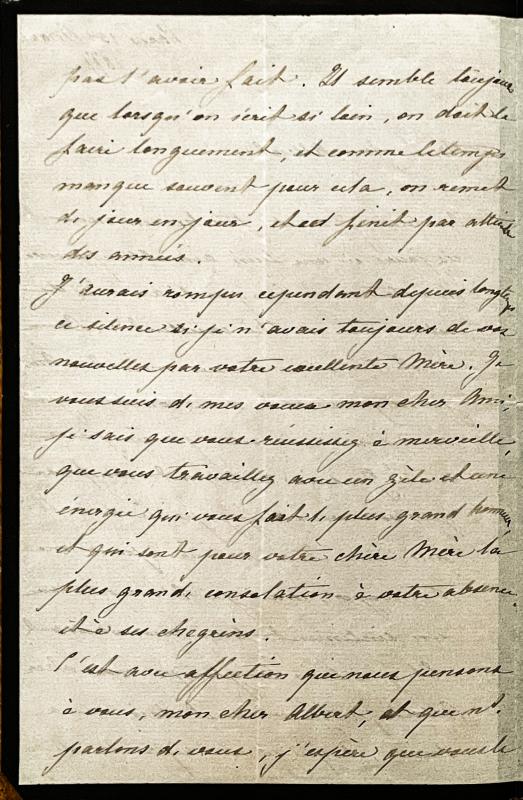 pas l'avoir fait. Il semble toujours
que lorsqu'on écrit si loin, on doit le
faire longuement, et comme le temps
manque souvent pour cela, on remet
de jour en jour, et cela finit par atteindre
des années.
J'aurais rompu cependant depuis longtemps
ce silence si je n'avais toujours de vos
nouvelles par votre excellente Mère. Je
vous suis de mes vœux mon cher Ami,
je sais que vous réussissez à merveille,
que vous travaillez avec un zèle et une
énergie qui vous fait le plus grand honneur,
et qui sont pour votre chère Mère la
plus grande consolation à votre absence
et à ses chagrins.
C'est avec affection que nous pensons
à vous, mon cher Albert, et que ns.
parlons de vous, j'espère que vous le